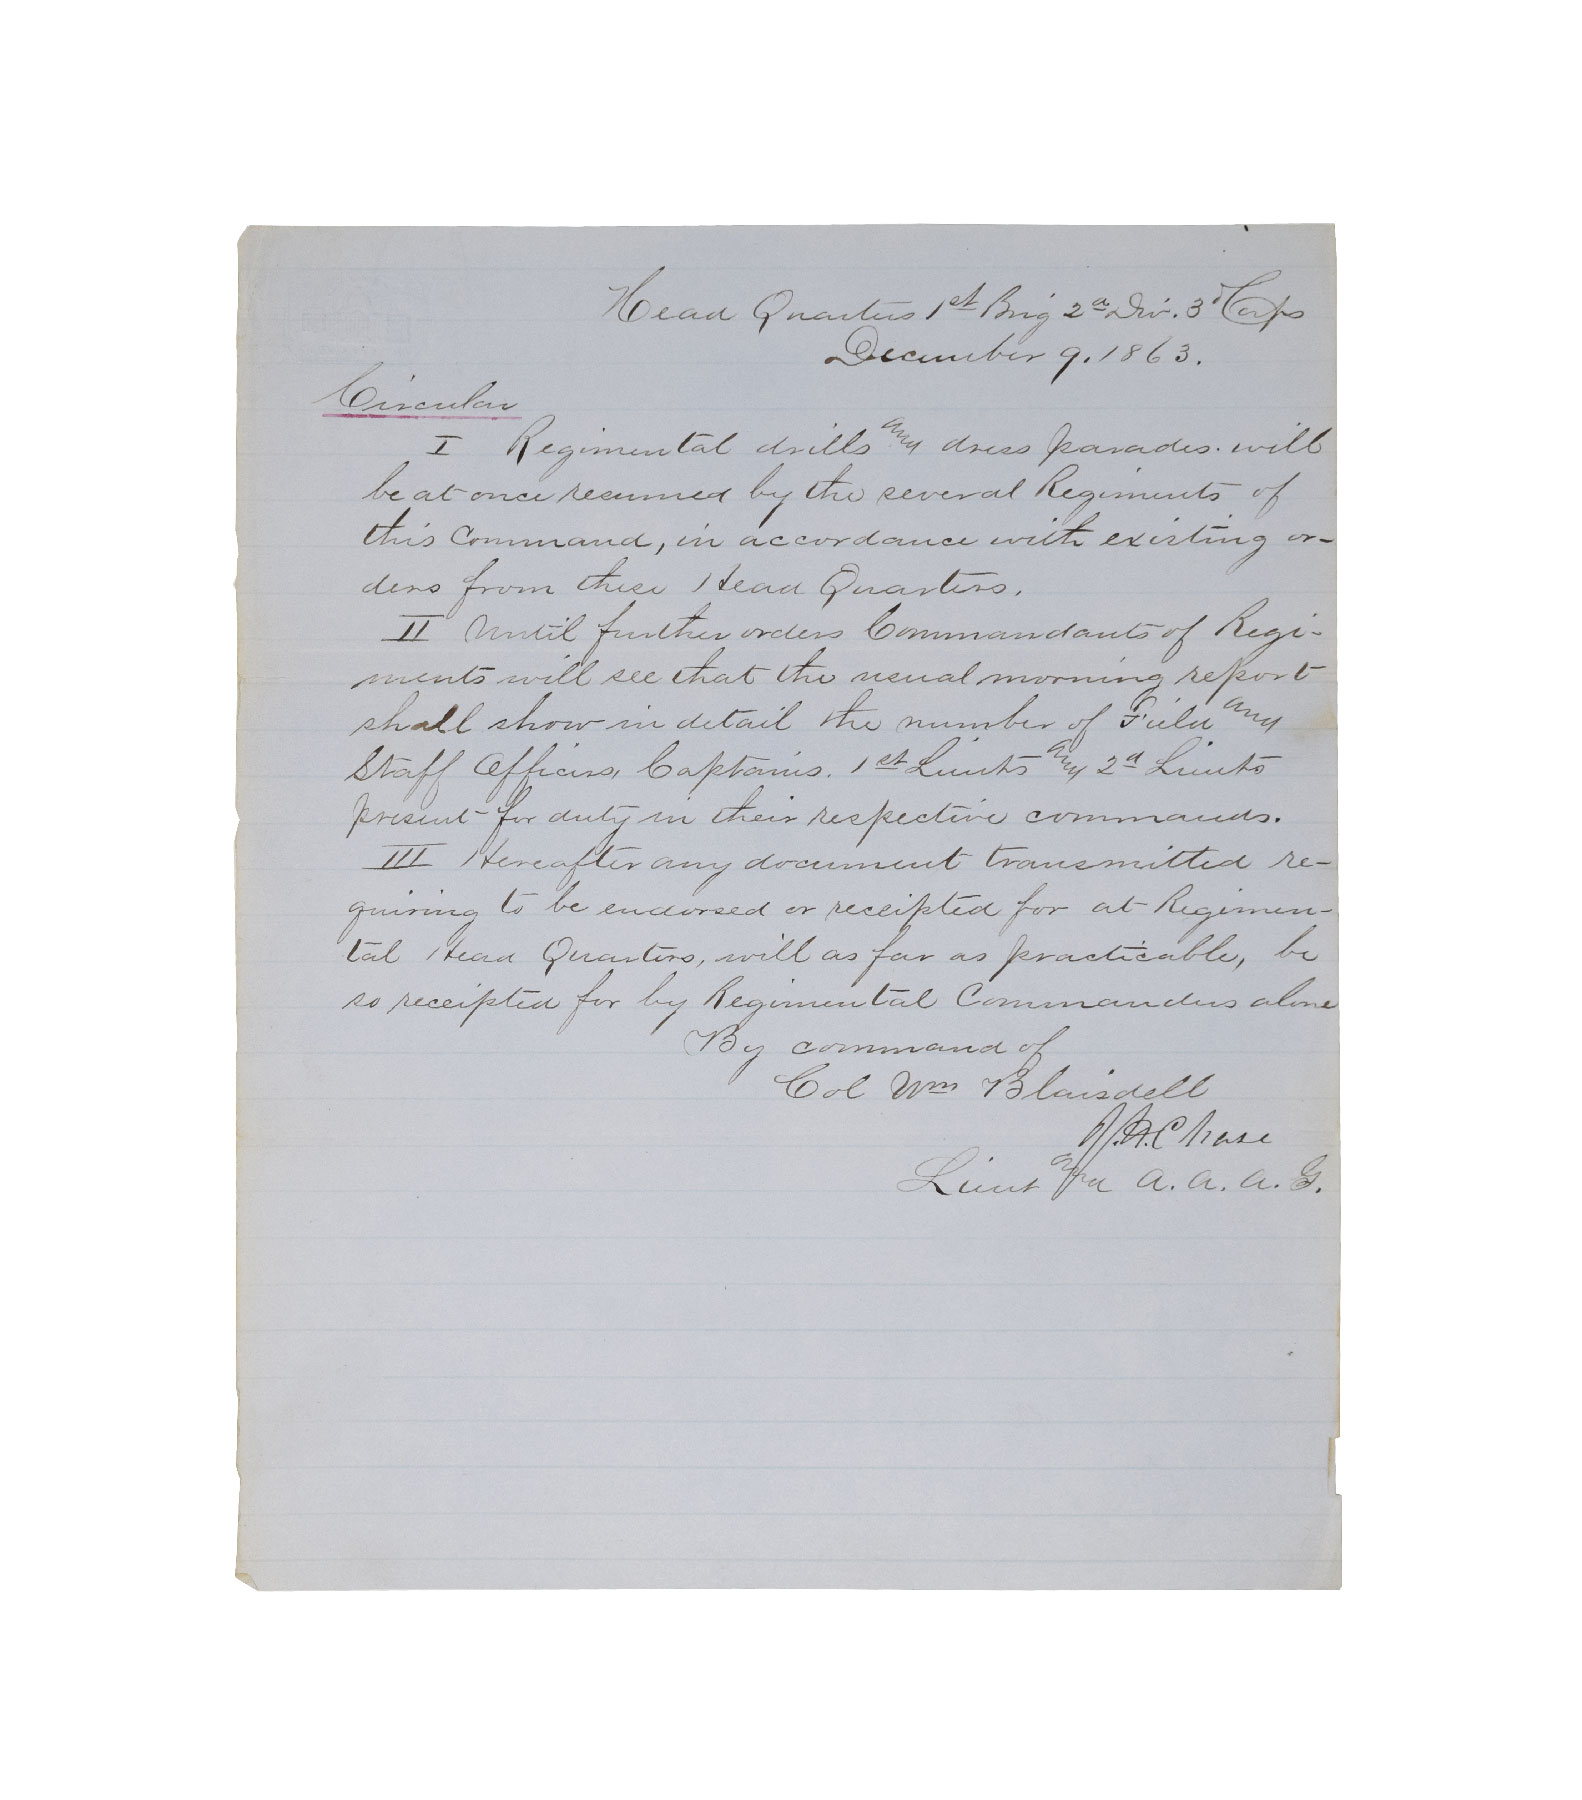 Head Quarters 1st Brig 2d Div. 3d Corps
December 9. 1863.
Circular
I Regimental drills and dress parades. will
be at once resumed by the several Regiments of
this Command, in accordance with existing or-
ders from these Head Quarters.
II Until further orders Commandants of Regi-
ments will see that the usual morning report
shall show in detail the number of Field and
Staff Officers, Captains. 1st Lieuts and 2d Lieuts
present for duty in their respective commands.
III Hereafter any document transmitted re-
quiring to be endorsed or receipted for at Regimen-
tal Head Quarters, will as far as practicable, be
so receipted for by Regimental Commanders alone
By command of
Col Wm Blaisdell
Chase
Lieut and A. A. A. G.